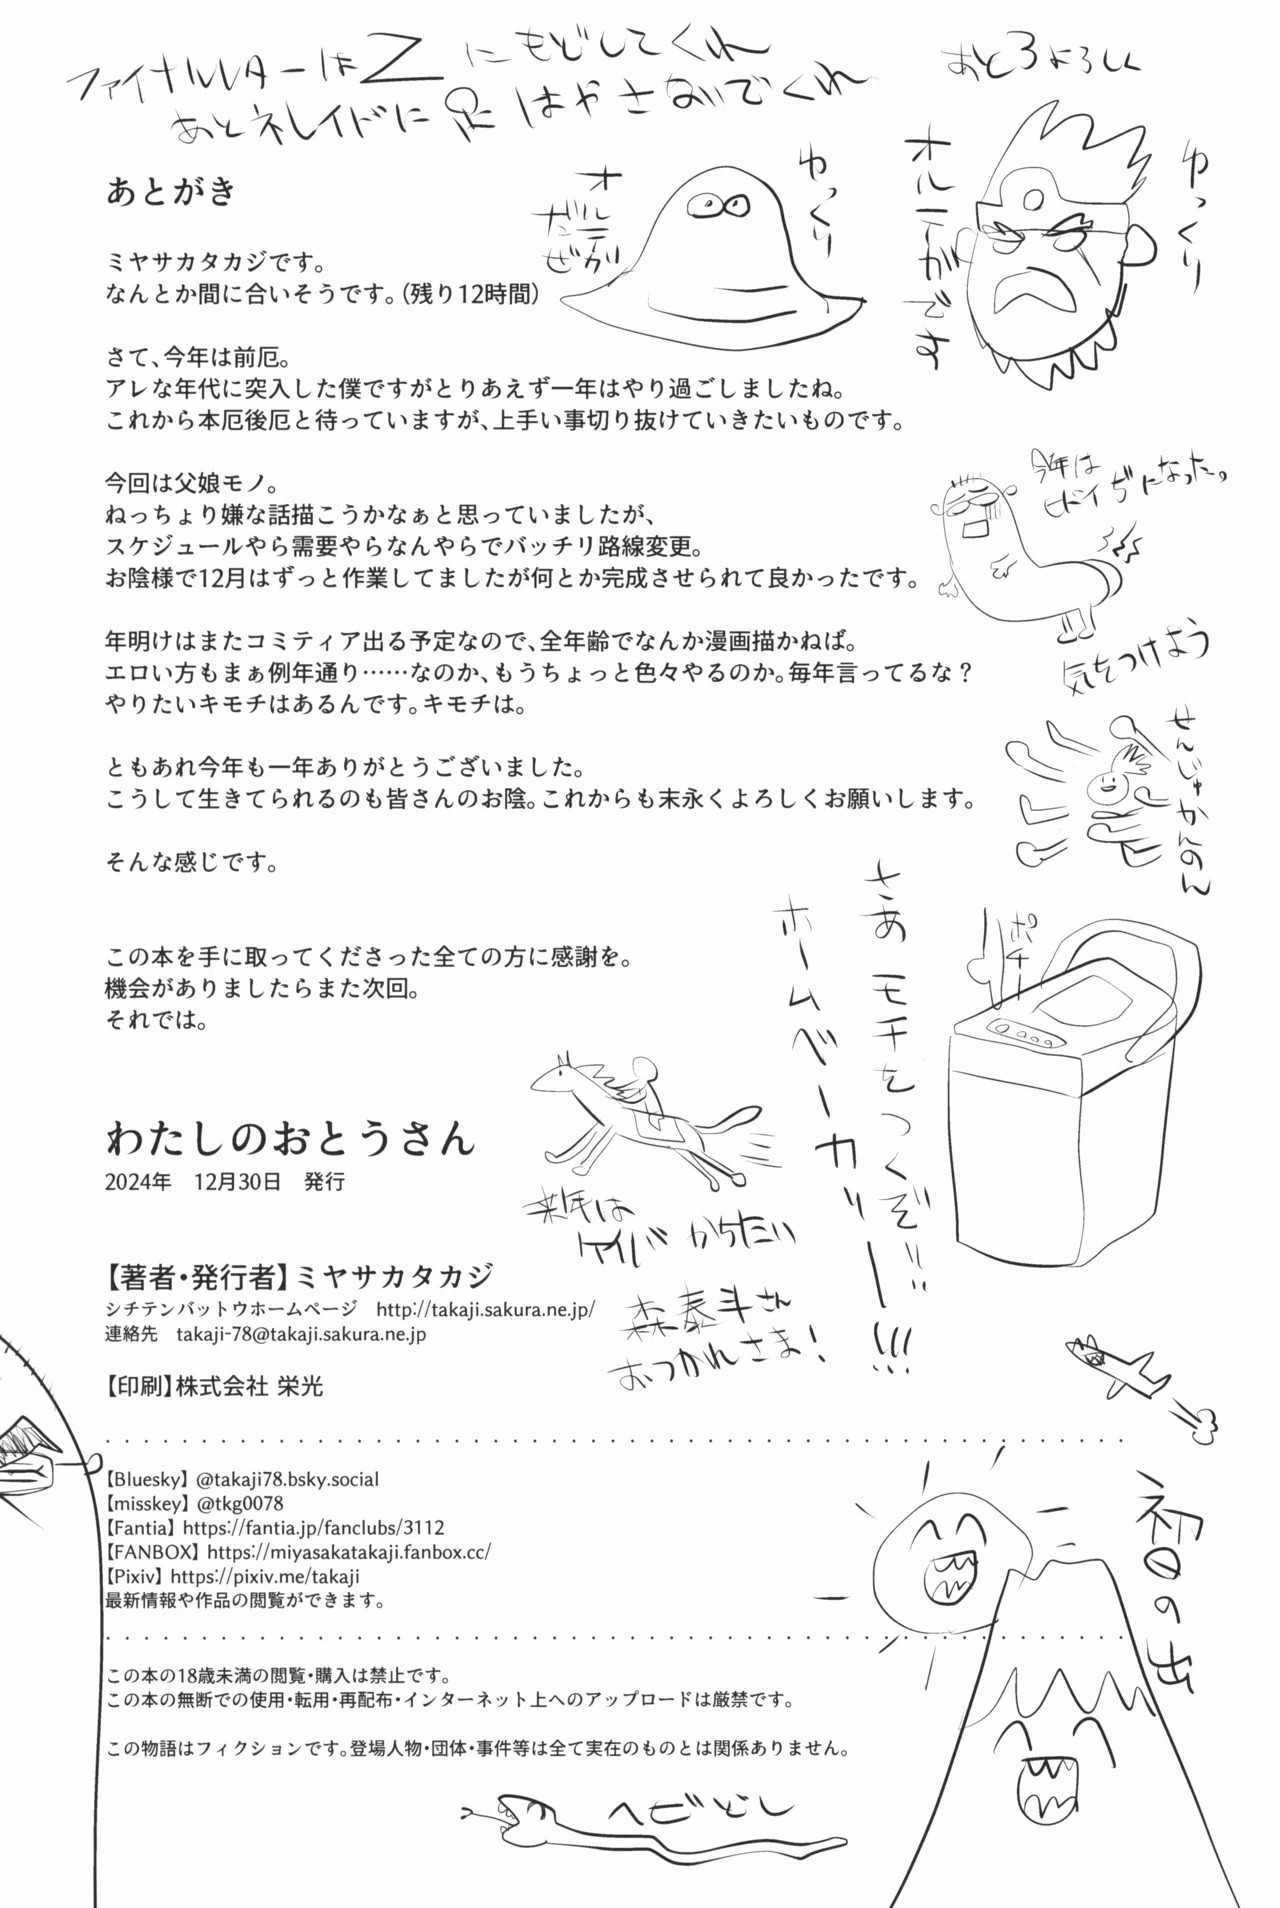 ファイナルレターはZにもどしてくれ
あとネレイドに足はやさないでくれ
あと3よろしく
あとがき
ミヤサカタカジです。
なんとか間に合いそうです。（残り12時間）
ゆっくり
オルテガ
だぜ
ゆっくり
オルテガです
さて、今年は前厄。
アレな年代に突入した僕ですがとりあえず一年はやり過ごしましたね。
これから本厄後厄と待っていますが、上手い事切り抜けていきたいものです。
今回は父娘モノ。
ねっちょり嫌な話描こうかなぁと思っていましたが、
スケジュールやら需要やらなんやらでバッチリ路線変更。
お陰様で12月はずっと作業してましたが何とか完成させられて良かったです。
今年は
ヒドイぢになった。
気をつけよう
年明けはまたコミティア出る予定なので、全年齢でなんか漫画描かねば。
エロい方もまぁ例年通り……なのか、もうちょっと色々やるのか。毎年言ってるな？
やりたいキモチはあるんです。キモチは。
せんじゅかんのん
ともあれ今年も一年ありがとうございました。
こうして生きてられるのも皆さんのお陰。これからも末永くよろしくお願いします。
そんな感じです。
さあモチをつくぞ
ホームベーカリー!!!
ポチー
この本を手に取ってくださった全ての方に感謝を。
機会がありましたらまた次回。
それでは。
わたしのおとうさん
2024年　12月30日　発行
来年は
ケイバからたい
森泰斗さん
おつかれさま！
【著者・発行者】ミヤサカタカジ
シチテンバットウホームページ　http://takaji.sakura.ne.jp/
連絡先　takaji-78@takaji.sakura.ne.jp
【印刷】株式会社 栄光
【Bluesky】@takaji78.bsky.social
【misskey】@tkg0078
【Fantia】https://fantia.jp/fanclubs/3112
【FANBOX】https://miyasakatakaji.fanbox.cc/
【Pixiv】https://pixiv.me/takaji
最新情報や作品の閲覧ができます。
初日の出
この本の18歳未満の閲覧・購入は禁止です。
この本の無断での使用・転用・再配布・インターネット上へのアップロードは厳禁です。
この物語はフィクションです。登場人物・団体・事件等は全て実在のものとは関係ありません。
ヘビどし